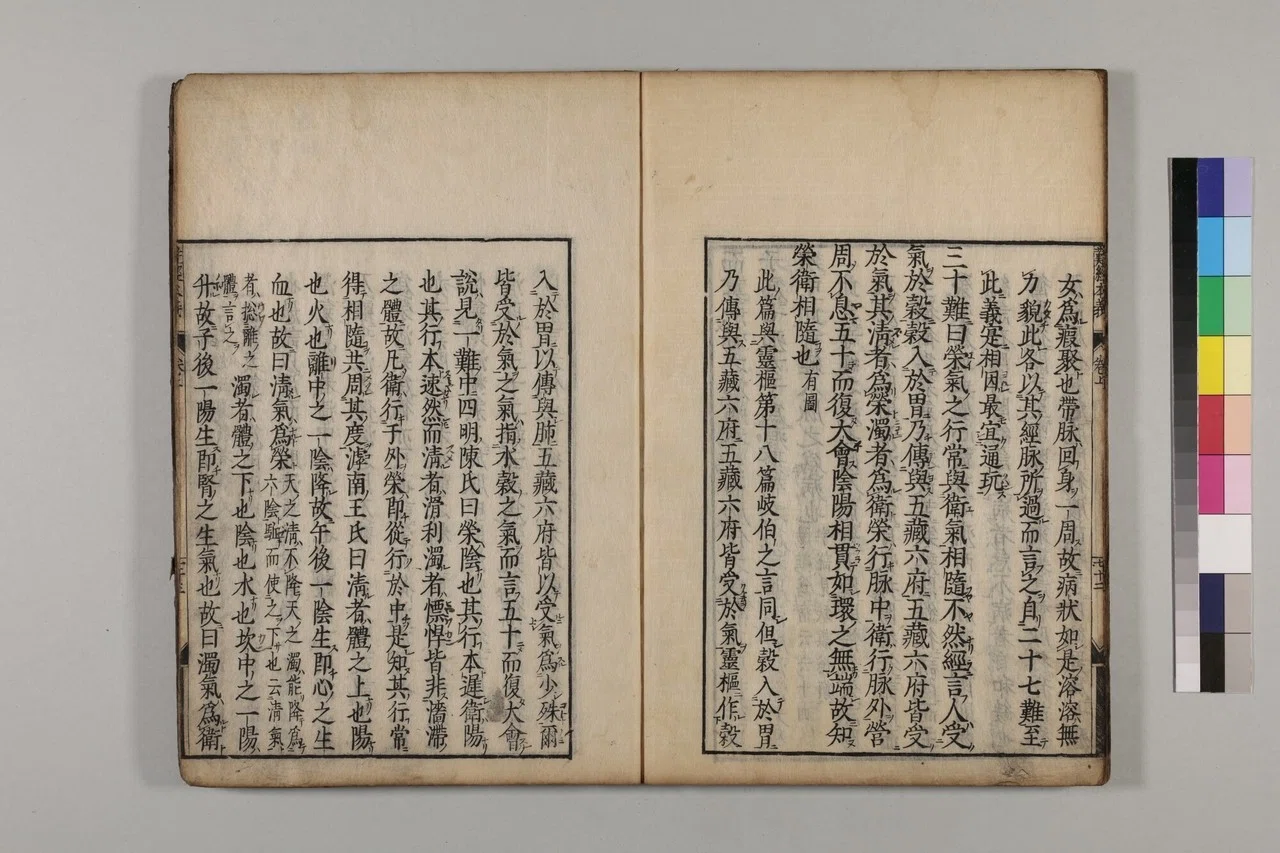 女為瘕聚也帶脉回身一周故病狀如是溶溶無
力貌此各以其經脉所過而言之自二十七難至
此義寔相因最宜通玩
三十難曰榮氣之行常與衛氣相隨不然經言人受
氣於穀穀入於胃乃傳與五藏六府五藏六府皆受
於氣其清者為榮濁者為衛榮行脉中衛行脉外營
周不息五十而復大會陰陽相貫如環之無端故知
榮衛相隨也有圖
此篇與靈樞第十八篇岐伯之言同但穀入於胃
乃傳與五藏六府五藏六府皆受於氣靈樞作穀
入於胃以傳與肺五藏六府皆以受氣為少殊爾
皆受於氣之氣指水穀之氣而言五十而復大會
說見一難中四明陳氏曰榮陰也其行本遲衛陽
也其行本速然而清者滑利濁者慓悍皆非濇滯
之體故凡衛行于外榮即從行於中是知其行常
得相隨共周其度滹南王氏曰清者體之上也陽
也火也離中之一陰降故午後一陰生即心之生
血也故曰清氣為榮天之清不降天之濁能降為
六陰驅而使之下也云清氣
者總離之
體言之濁者體之下也陰也水也坎中之一陽
升故子後一陽生即腎之生氣也故曰濁氣為衛
難經本義
卷上
七十二